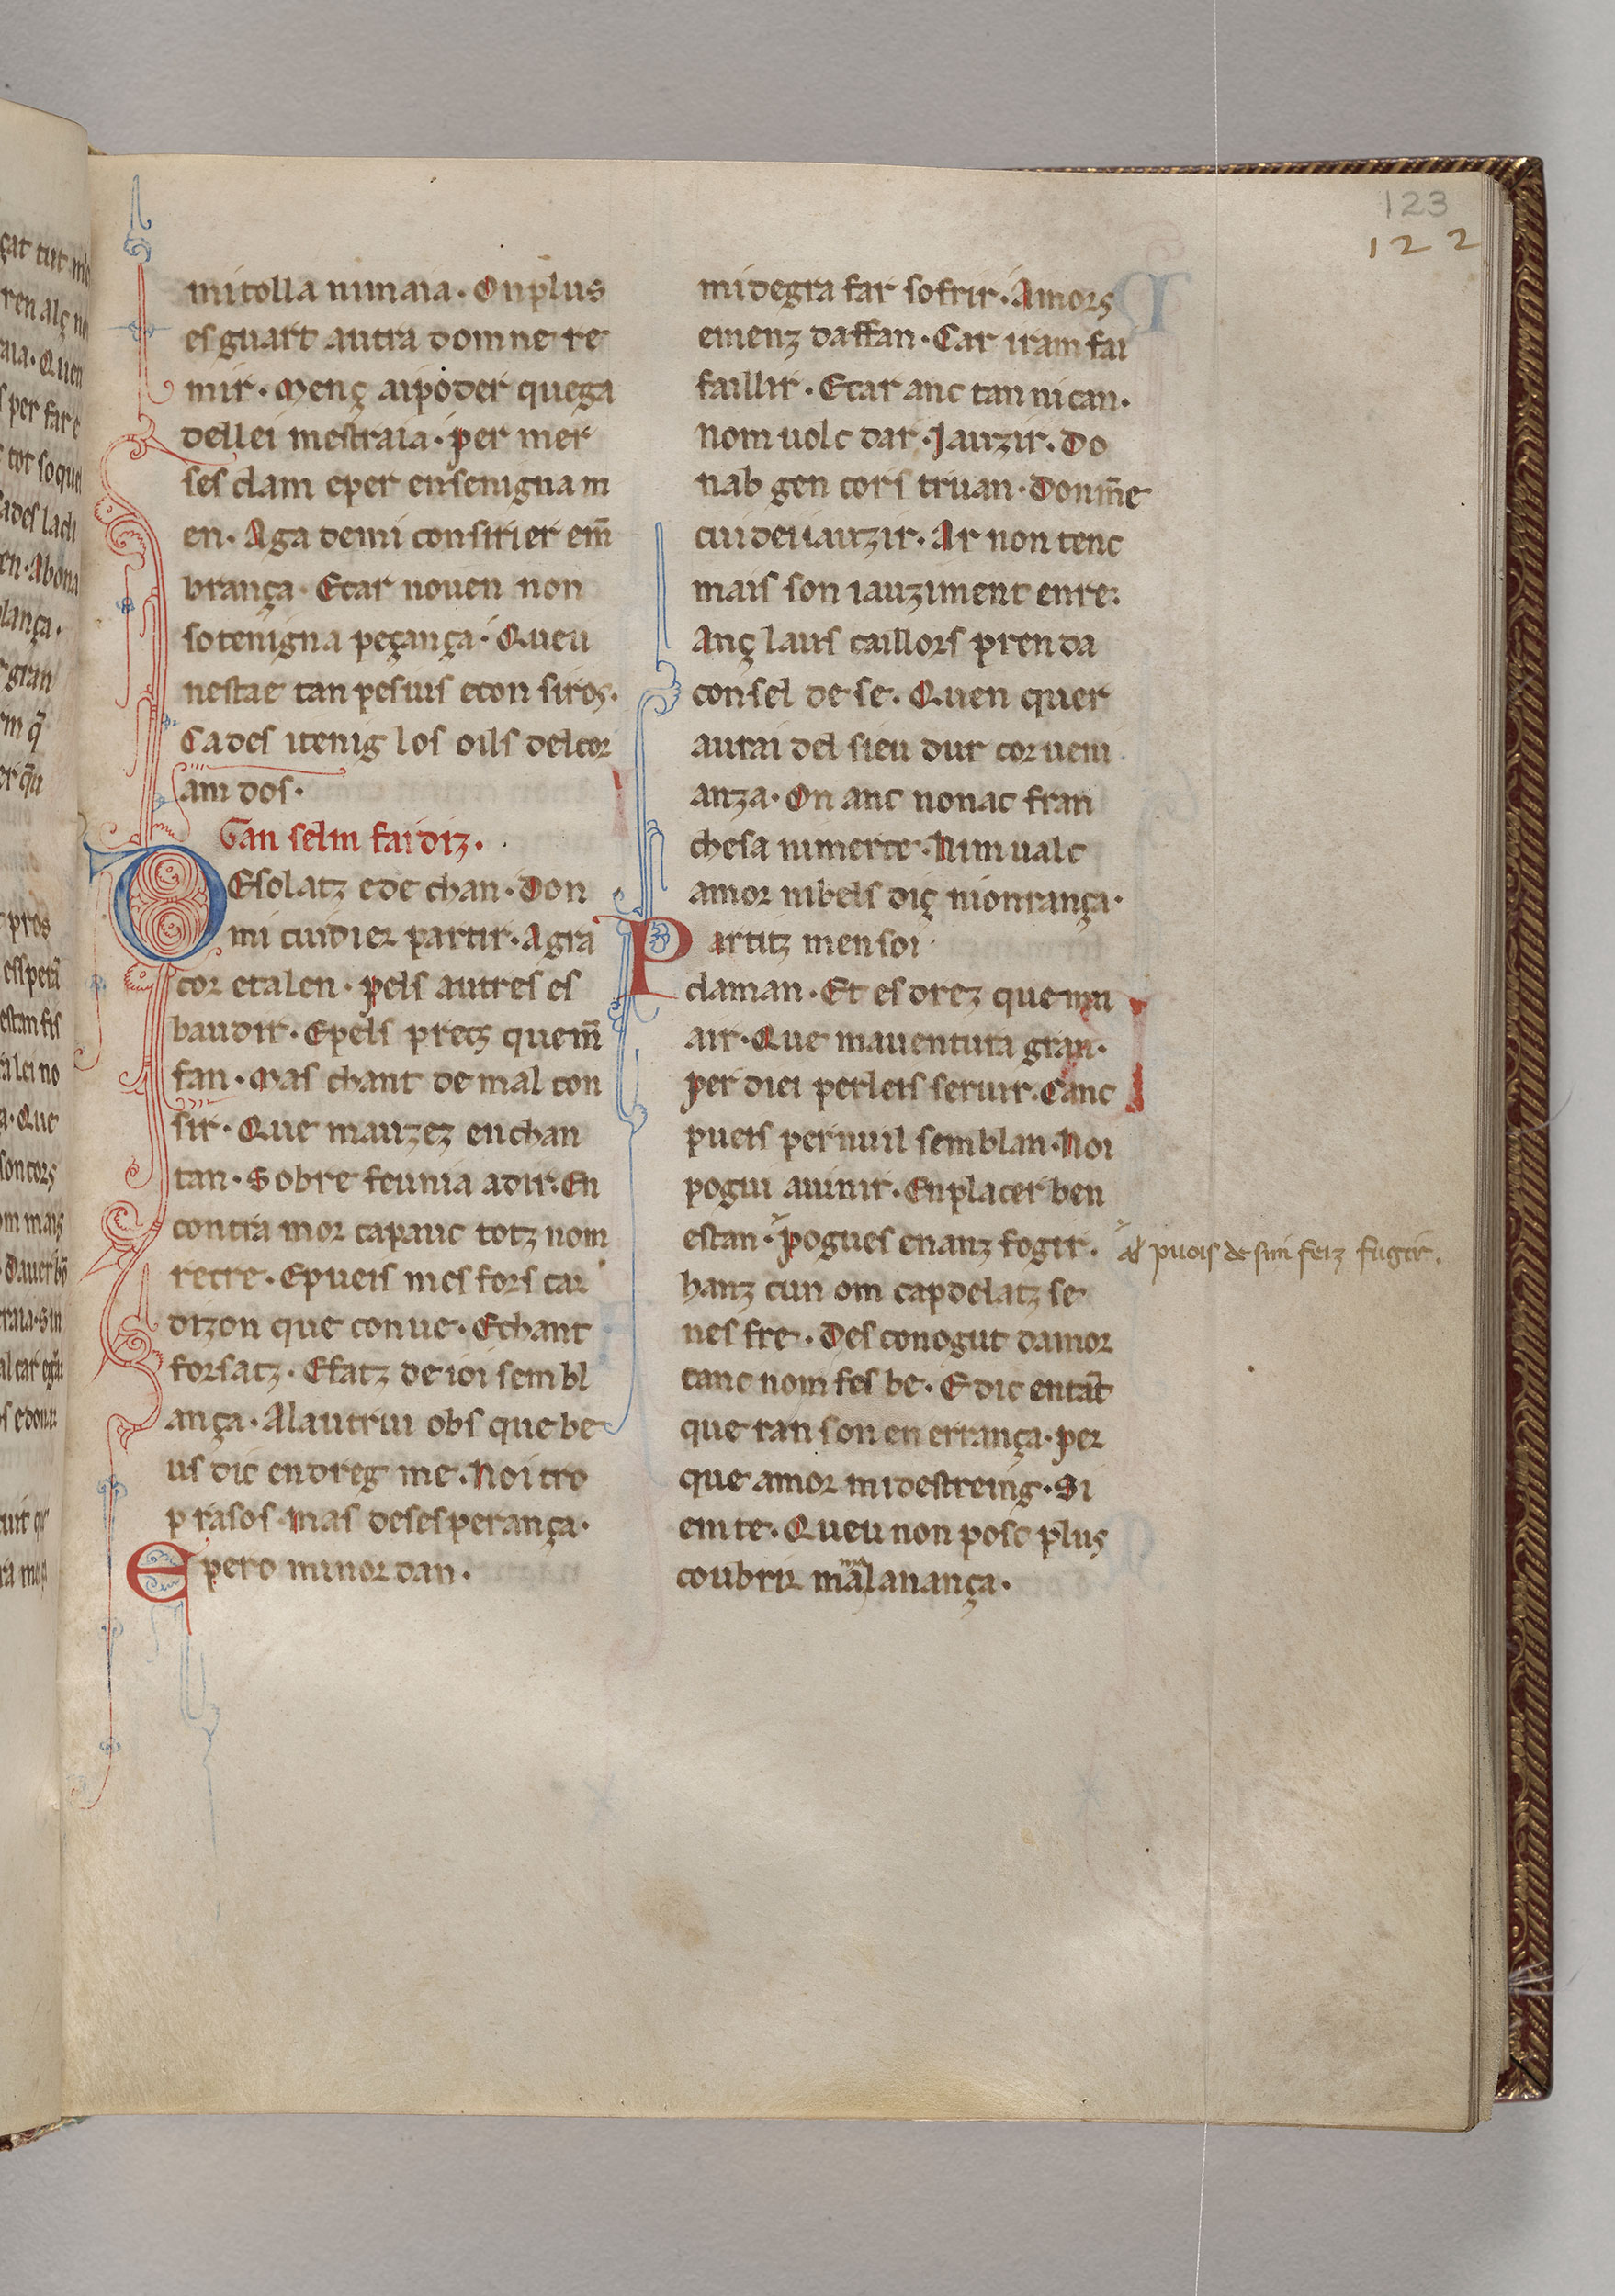 123
122
mi tolla ni maia. On plus
es guart autra domne re
mir. Menç ai poder que ga
de llei mestraia. per mer
ses clam e per ensenignam
en. Aga de mi consirier em̃
brança. Et car no uen non
so tenigna peçança. Queu
nestac tan pesius e con siros.
Cades i tenig los oils del cor
am dos.
Gan selm faidiz.
DEsolatz e de chan. Don
mi cuidiei partir. Agra
cor e talen. pels autres es
baudir. E pels pretz que m̃
fan. Mas chant de mal con
sir. Que mauzez en chan
tan. Sobre feunia a dir. En
contra mor capauc totz nom
recre. E pueis mes fors car
dizon que conue. E chant
forsatz. E fatz de ioi sembl
ança. Al autrui obs que be
us dic en dreg me. Noi tro
p rasos mas deses perança.
E pero minor dan.
mi degra far sofrir. Amors
e menz daffan. Car iram fai
faillir. E car anc tan ni can.
nom uolc dar. Jauzir. Do
nab gen cors truan. Dom̃e
cui deu iauzir. Ar non tenc
mais son iauziment en re.
Anç lais caillors prenda
consel de se. Quen quer
aurai del sieu dur cor uem
anza. On anc non ac fran
chesa ni merce. Nim ualc
amor ni bels diç ni onrança.
Partitz men soi
claman. Et es drez quem u
air. Que mauentura gran.
per diei per leis seruir. Canc
pueis per nuil semblan. Noi
pogui auinir. En placer ben
estan. pogues enanz fogir.
al puois de sim feiz fugir.
hanz cun om capdelatz se
nes fre. Des conogut damor
canc nom fes be. E dic entãt
que ran son en errança. per
que amor mi destreing. Si
em te. Queu non posc plus
coubrir ma mal anança.